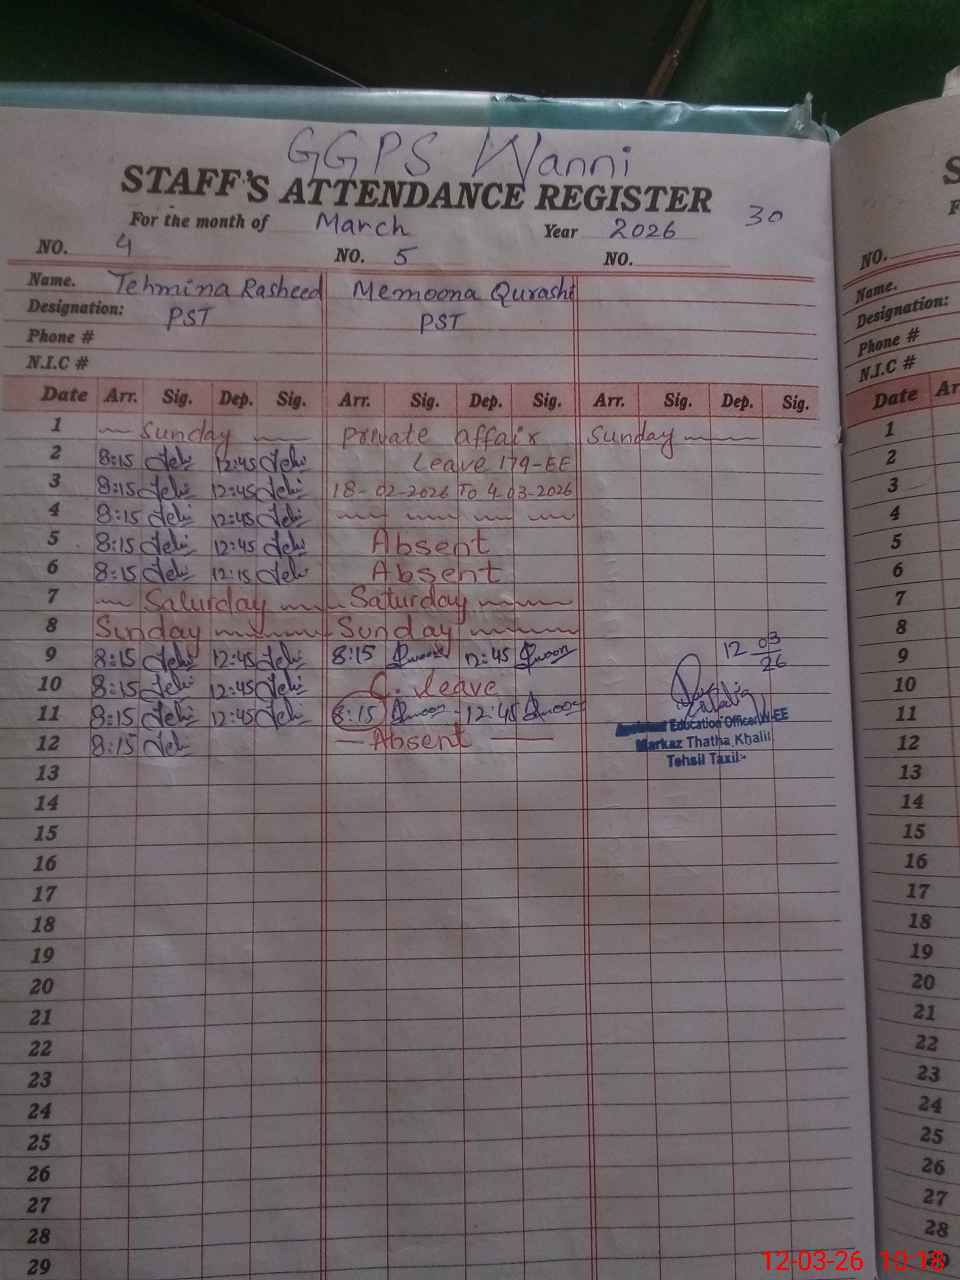 GGPS Wanni
STAFF'S ATTENDANCE REGISTER
For the month of March Year 2026 30
NO. 4 NO. 5 NO.
Name. Tehmina Rasheed Memoona Qurashi
Designation: PST PST
Phone #
N.I.C #
Date Arr. Sig. Dep. Sig. Arr. Sig. Dep. Sig. Arr. Sig. Dep. Sig.
1 Sunday Private affair Sunday
2 8:15 12:45 Leave 179-EE
3 8:15 12:45 18-02-2026 To 4 03-2026
4 8:15 12:45
5 8:15 12:45 Absent
6 8:15 12:15 Absent
7 Saturday Saturday
8 Sunday Sunday
9 8:15 12:45 8:15 12:45 12 03/26
10 8:15 12:45 C. leave
11 8:15 12:45 8:15 12:45
12 8:15 Absent
Assistant Education Officer W-EE
Markaz Thatha Khalil
Tehsil Taxila
13
14
15
16
17
18
19
20
21
22
23
24
25
26
27
28
29
S
F
NO.
Name.
Designation:
Phone #
N.I.C #
Date Ar
1
2
3
4
5
6
7
8
9
10
11
12
13
14
15
16
17
18
19
20
21
22
23
24
25
26
27
28
12-03-26 10:18